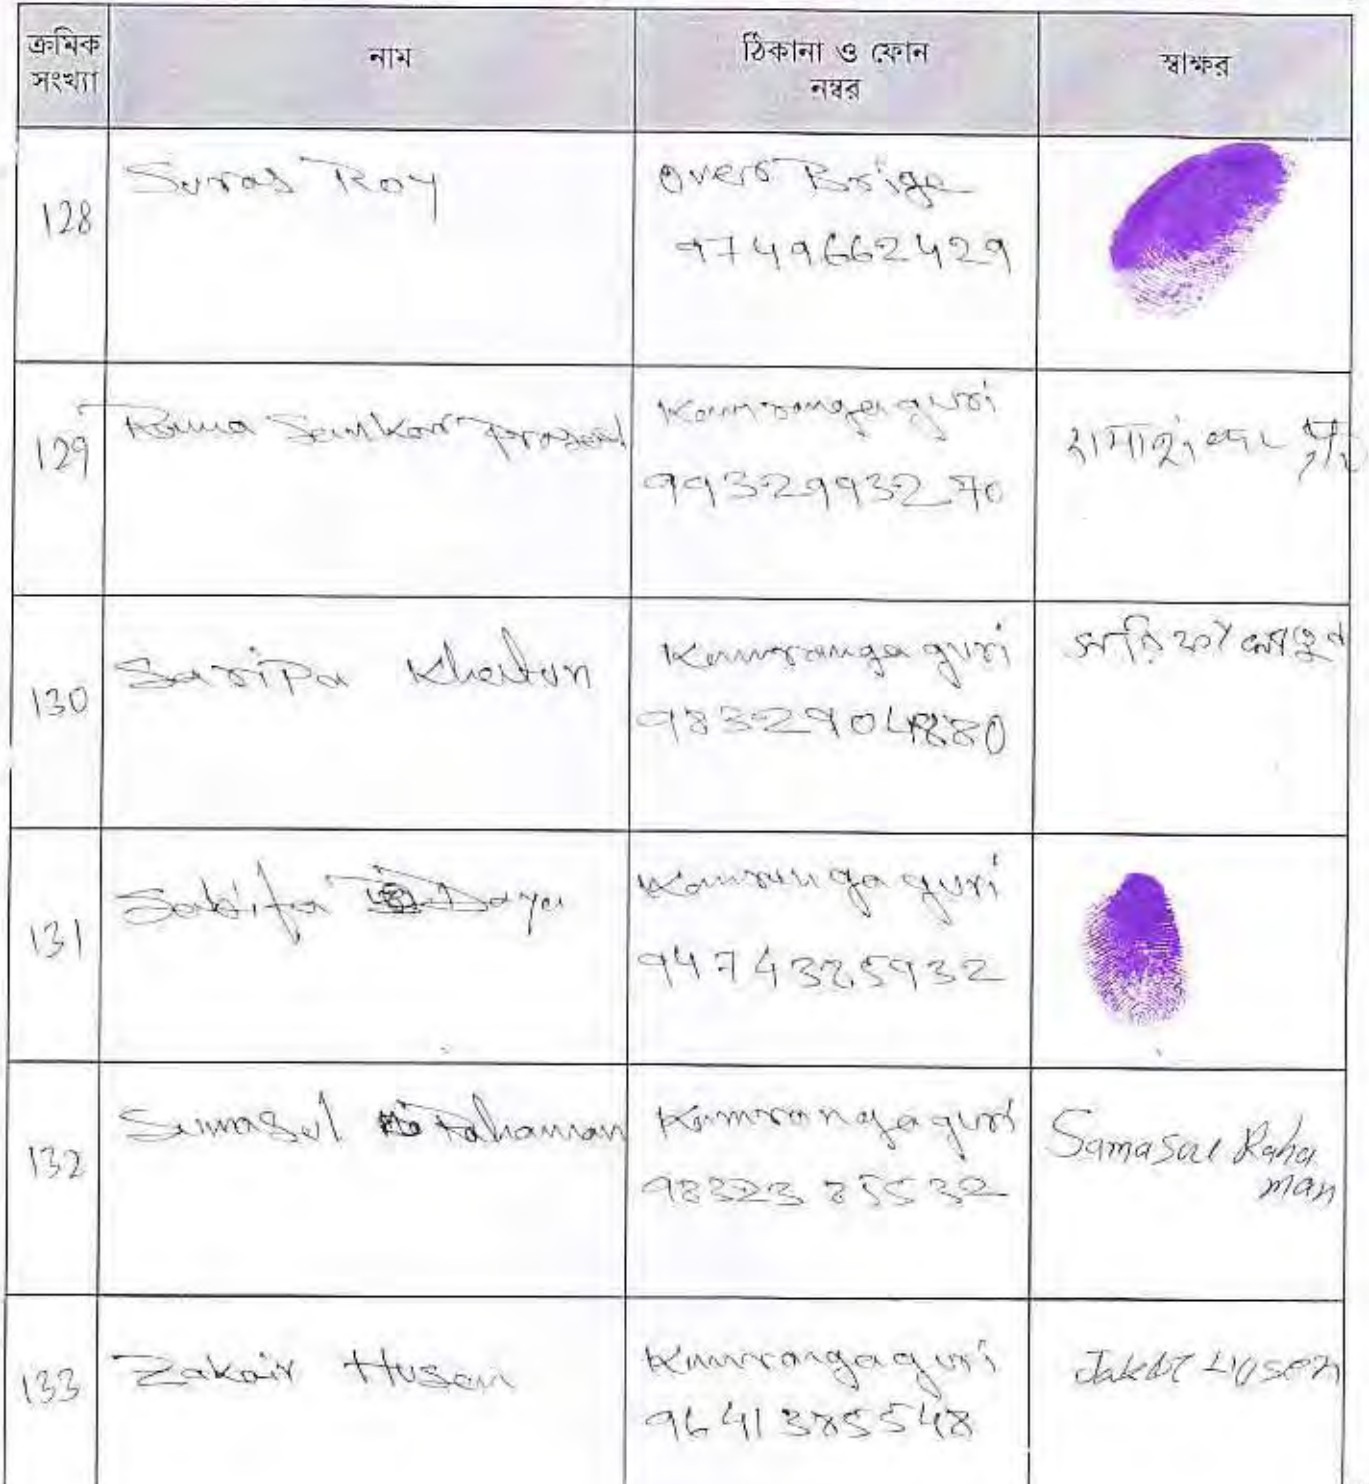 ক্রমিক সংখ্যা
নাম
ঠিকানা ও ফোন নম্বর
স্বাক্ষর
128
Suras Roy
Over Brige
9749662429
129
Rama Sankar Prasad
Kamrangaguri
9932993270
130
Saripa Khatun
Kamrangaguri
9832904880
সরিফা খাতুন
131
Kamrangaguri
9474325932
132
Samasul Rahaman
Kamrangaguri
9832385532
Samasul Raha
man
133
Zakair Husen
Kamrangaguri
9641385548